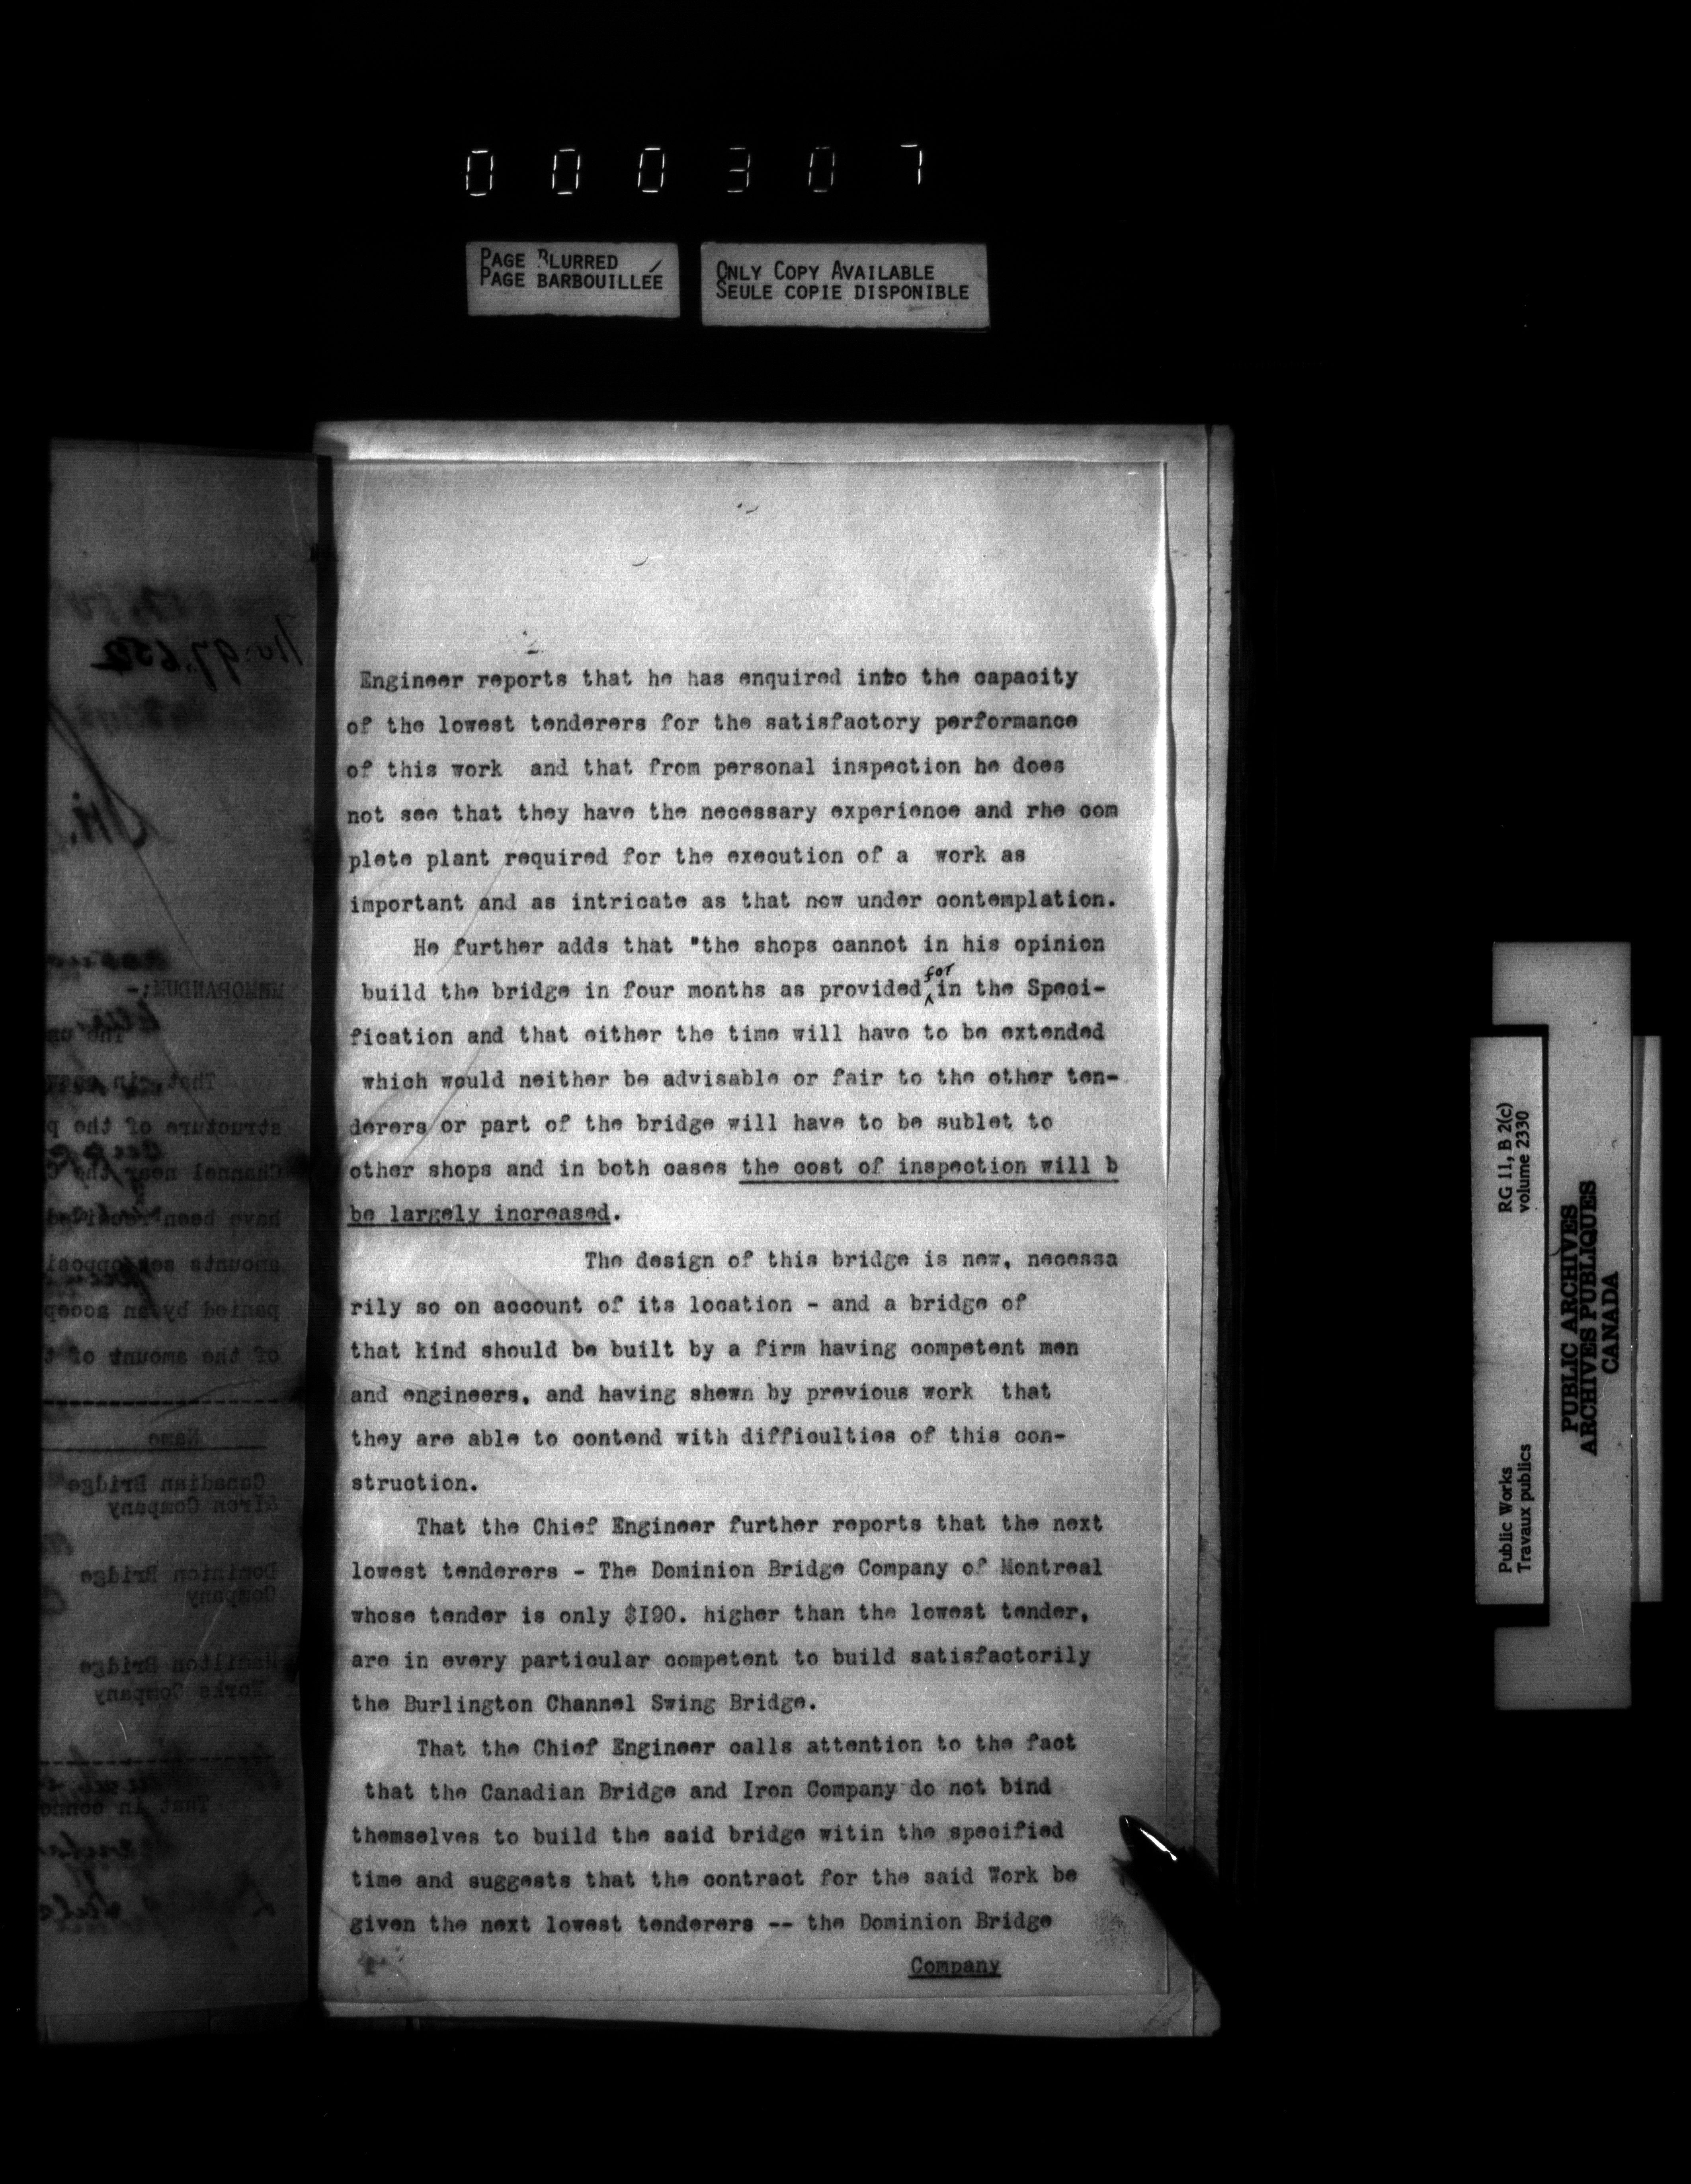 0 0 0 3 0 7
PAGE BLURRED
PAGE BARBOUILLÉE
ONLY COPY AVAILABLE
SEULE COPIE DISPONIBLE
Engineer reports that he has enquired into the capacity
of the lowest tenderers for the satisfactory performance
of this work and that from personal inspection he does
not see that they have the necessary experience and rhe com
plete plant required for the execution of a work as
important and as intricate as that now under contemplation.
He further adds that "the shops cannot in his opinion
build the bridge in four months as provided for in the Speci-
fication and that either the time will have to be extended
which would neither be advisable or fair to the other ten-
derers or part of the bridge will have to be sublet to
other shops and in both cases the cost of inspection will b
be largely increased.
The design of this bridge is new, necessa
rily so on account of its location - and a bridge of
that kind should be built by a firm having competent men
and engineers, and having shewn by previous work that
they are able to contend with difficulties of this con-
struction.
That the Chief Engineer further reports that the next
lowest tenderers - The Dominion Bridge Company of Montreal
whose tender is only $I90. higher than the lowest tender,
are in every particular competent to build satisfactorily
the Burlington Channel Swing Bridge.
That the Chief Engineer calls attention to the fact
that the Canadian Bridge and Iron Company do not bind
themselves to build the said bridge witin the specified
time and suggests that the contract for the said Work be
given the next lowest tenderers -- the Dominion Bridge
Company
No. 97,652
MEMORANDUM:-
The un
That, in
structure of the p
Channel near the
have been received
amounts set opposi
panied by an accep
of the amount of t
Name
Canadian Bridge
&Iron Company
Dominion Bridge
Company
Hamilton Bridge
Works Company
That in conne
Public Works
Travaux publics
RG 11, B 2(c)
volume 2330
PUBLIC ARCHIVES
ARCHIVES PUBLIQUES
CANADA